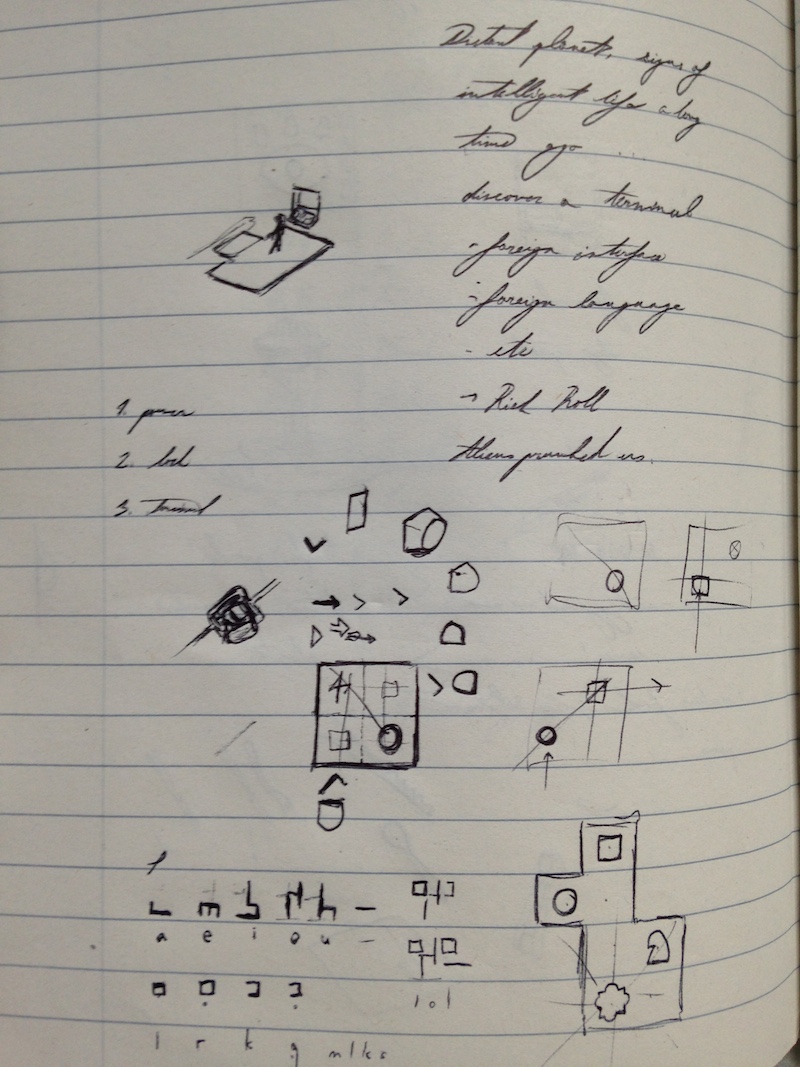 Distant planet, signs of
intelligent life a long
time ago ...
discover a terminal
- foreign interface
- foreign language
- etc
→ Rick Roll
Aliens prank'd us.
1. power
2. lock
3. Terminal
a e i o u -
lol
l r k g